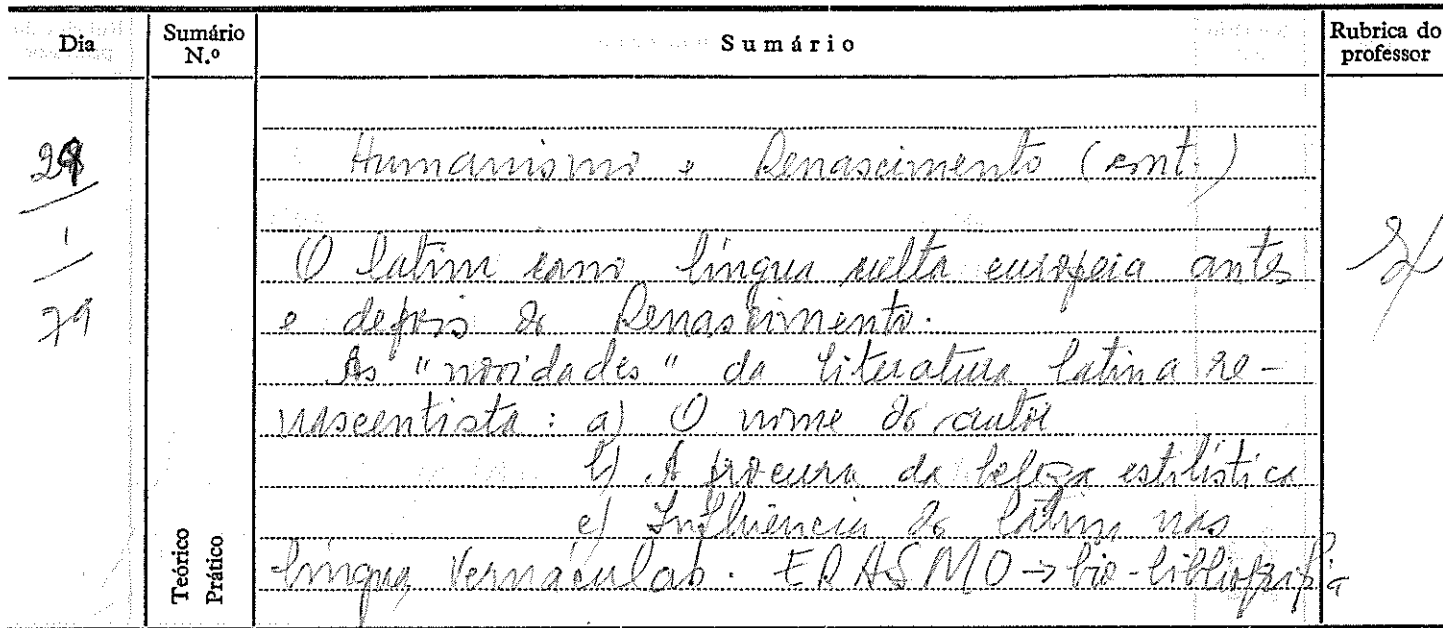 Dia
Sumário N.º
Sumário
Rubrica do professor
Humanismo e Renascimento (cont.)
1
79
O latim como língua culta europeia antes
e depois do Renascimento.
As "novidades" da literatura latina re-
nascentista: a) O nome do autor
b) A procura da beleza estilística
c) Influência do latim nas
línguas vernáculas. ERASMO → bio-bibliografia
Teórico
Prático